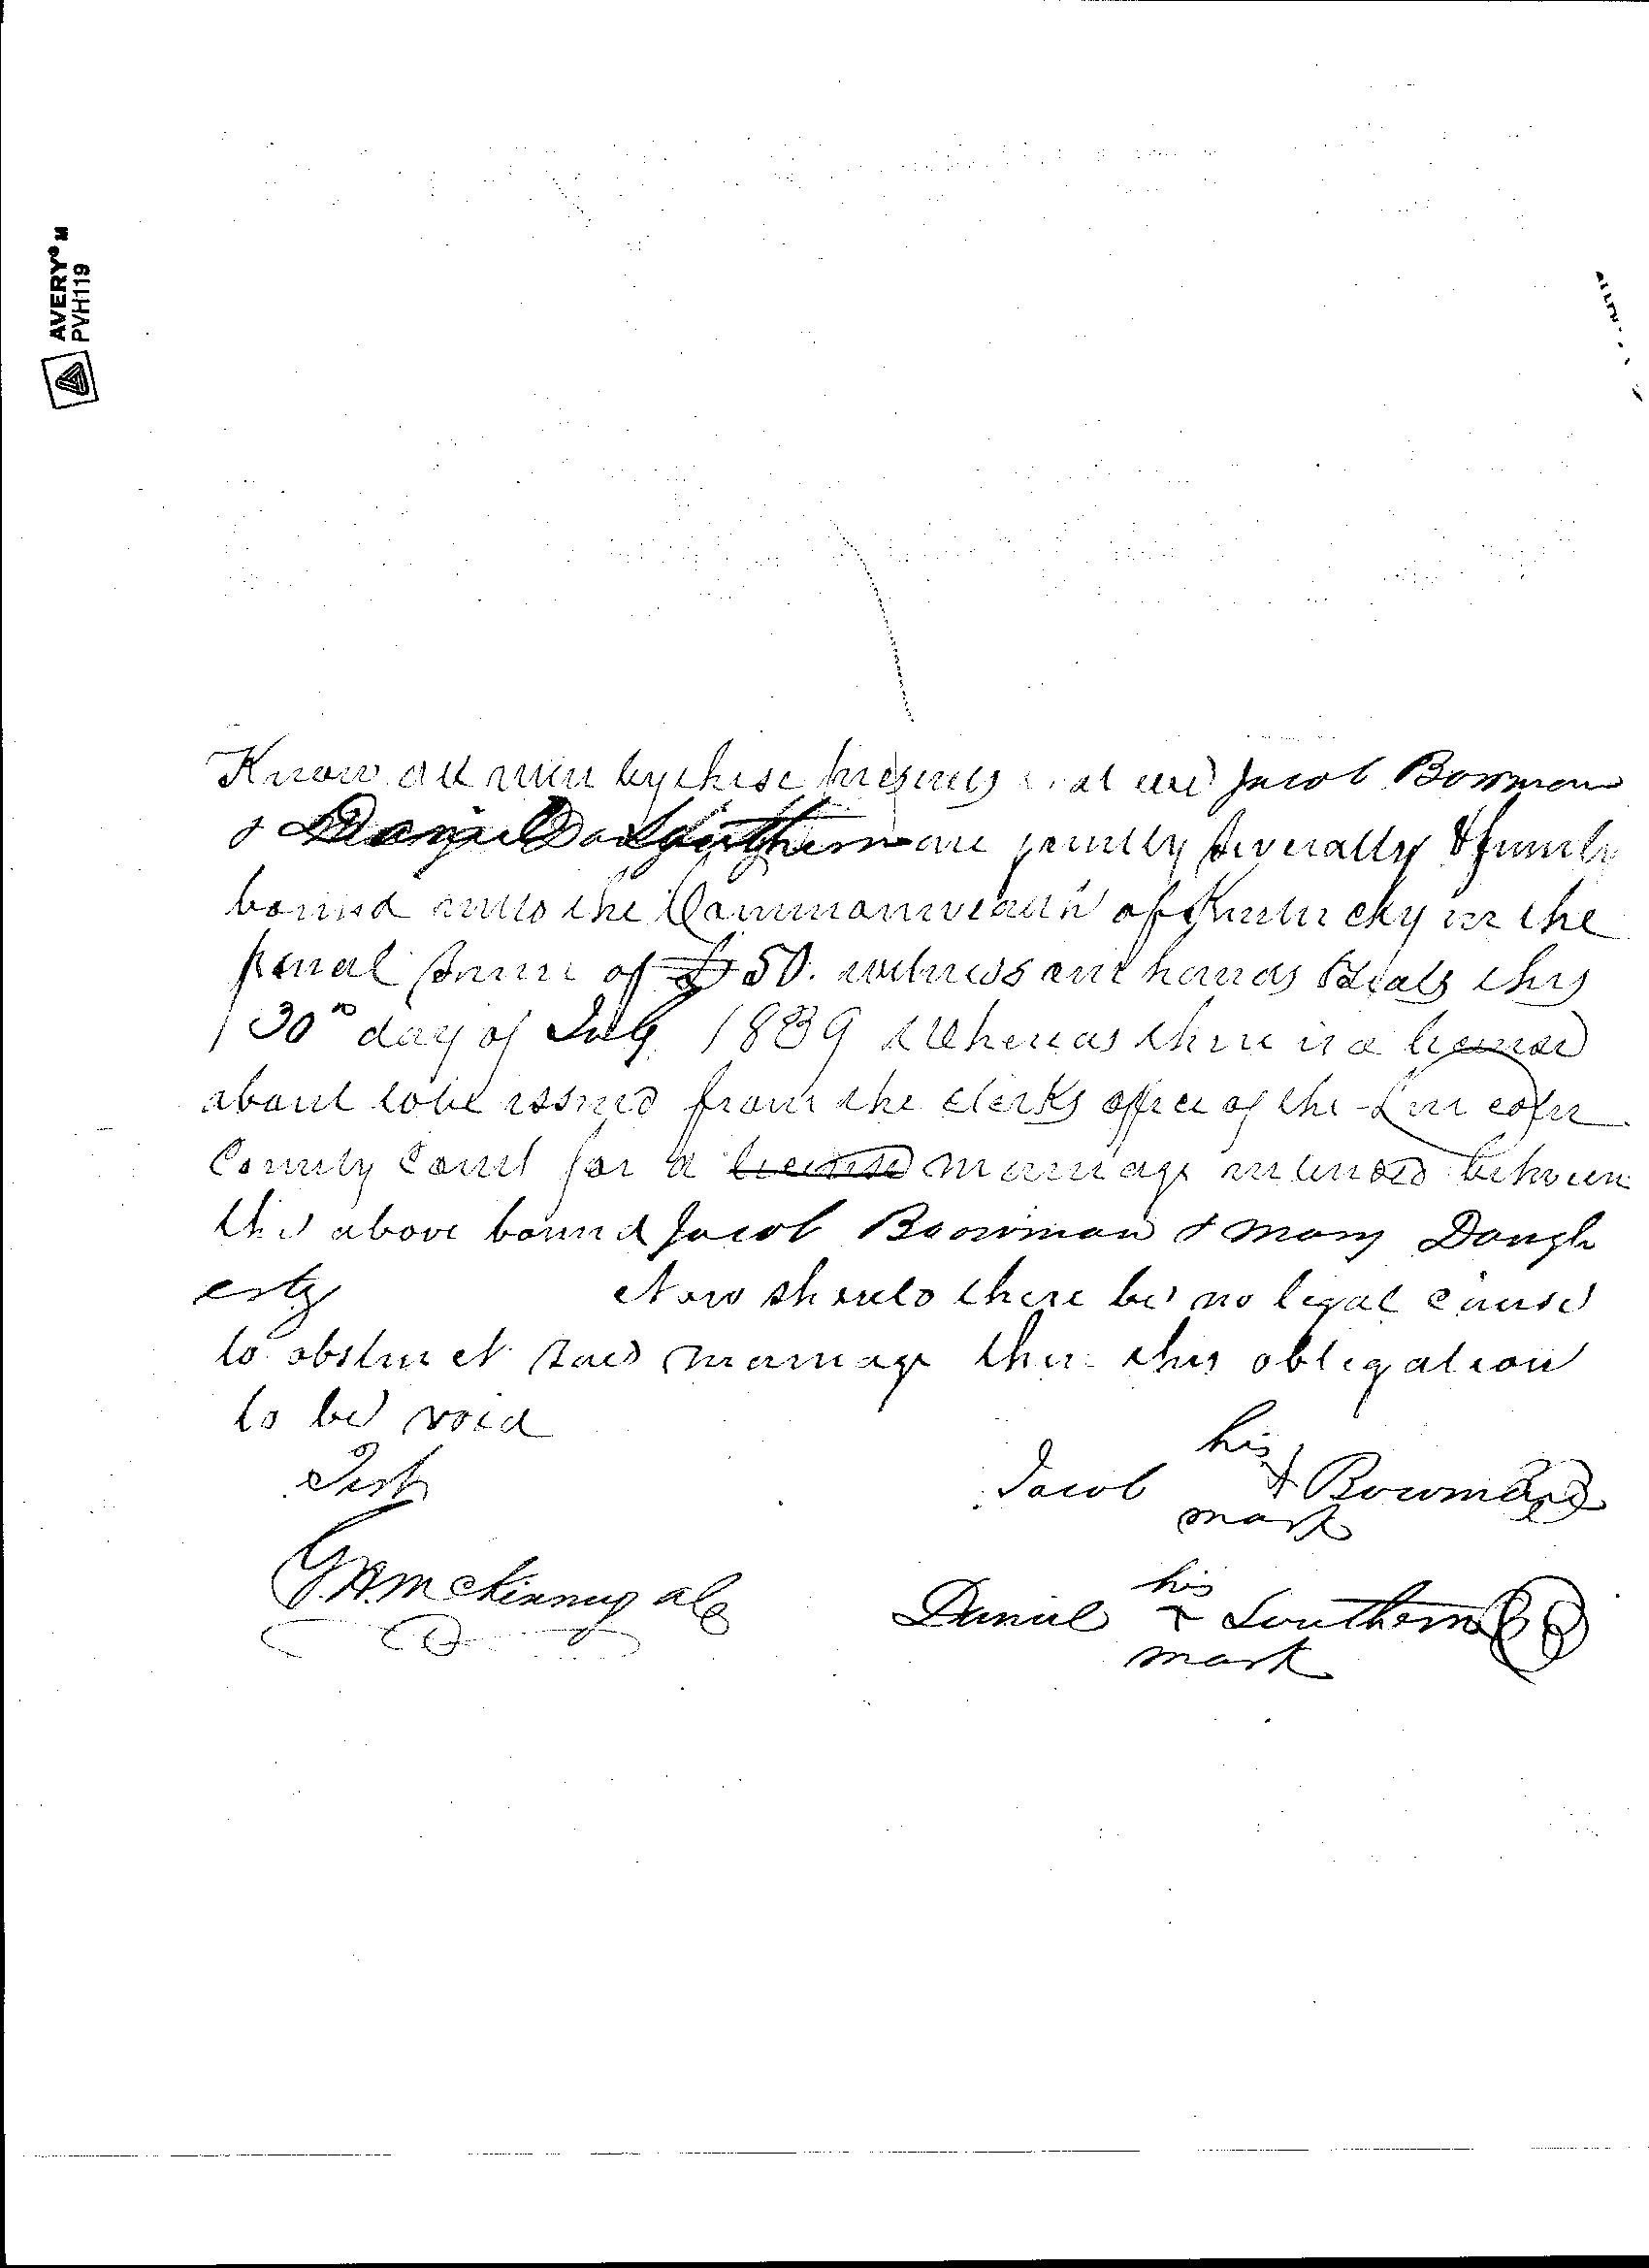 AVERY® M
PVH119
Know all men by these presents that we Jacob Bowman
& Daniel Southern are jointly severally & firmly
bound unto the Commonwealth of Kentucky in the
penal sum of £ 50. witness our hands & seals this
30th day of July 1839 Whereas there is a license
about to be issued from the clerks office of the Lincoln
County Court for a license marriage intended between
the above bound Jacob Boowman & Mary Dough
erty Now should there be no legal cause
to obstruct said marriage then this obligation
to be void
Test
his
Jacob + Bowman
mark
G. A. McKinney
his
Daniel + Southern
mark